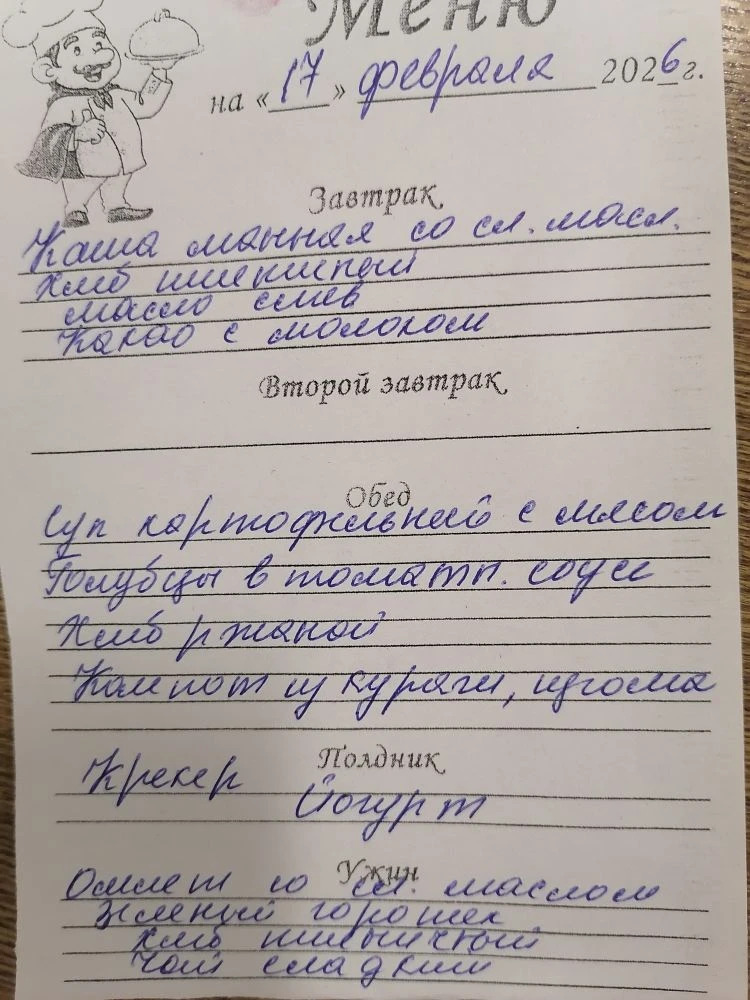 Меню
на «17» февраля 2026 г.
Завтрак
Каша манная со сл. масл.
Хлеб пшеничный
масло слив
Какао с молоком
Второй завтрак
Обед
Суп картофельный с мясом
Голубцы в томатн. соусе
Хлеб ржаной
Компот из кураги, изюма
Полдник
Крекер
Йогурт
Ужин
Омлет со сл. маслом
Зеленый горошек
Хлеб пшеничный
Чай сладкий